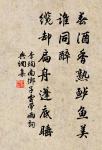 春酒香熟鲈鱼美
谁同醉
缆却扁舟篷底睡
李珣南乡子云带雨词
典词集